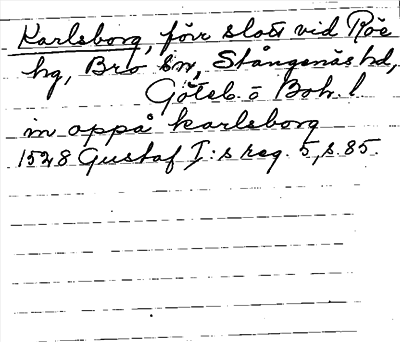 Karlsborg, förr slott vid Röe
hg, Bro sn, Stångenäs hd,
Göteb. o Boh. l.
in oppå karlsborg
1528 Gustaf I:s reg. 5, s. 85.